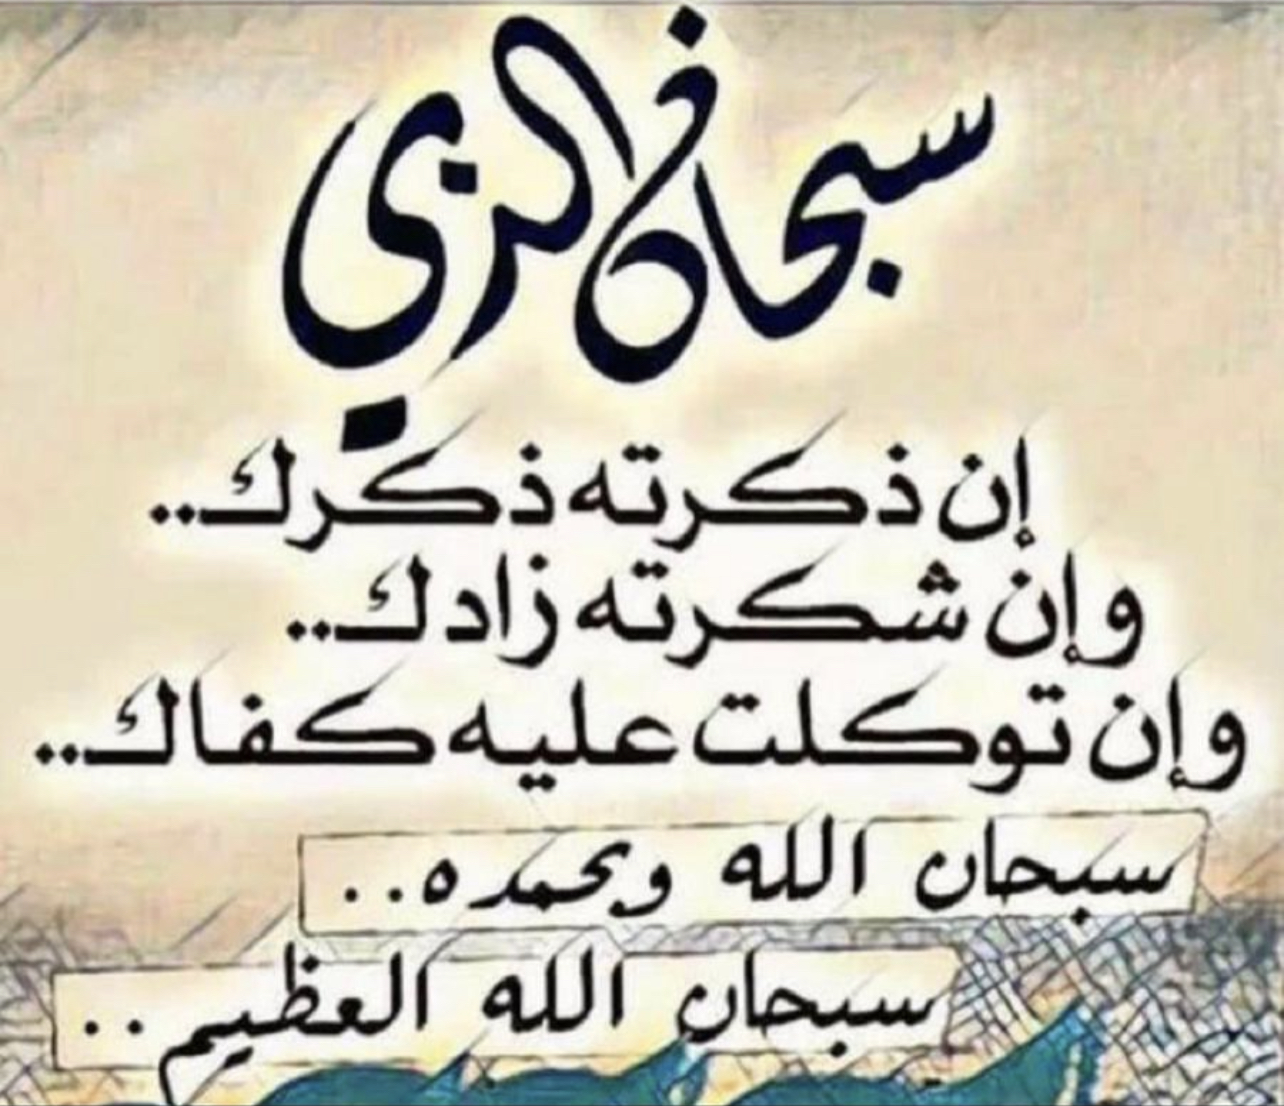 سبحان الذي
إن ذكرته ذكرك..
وإن شكرته زادك..
وإن توكلت عليه كفاك..
سبحان الله وبحمده..
سبحان الله العظيم..